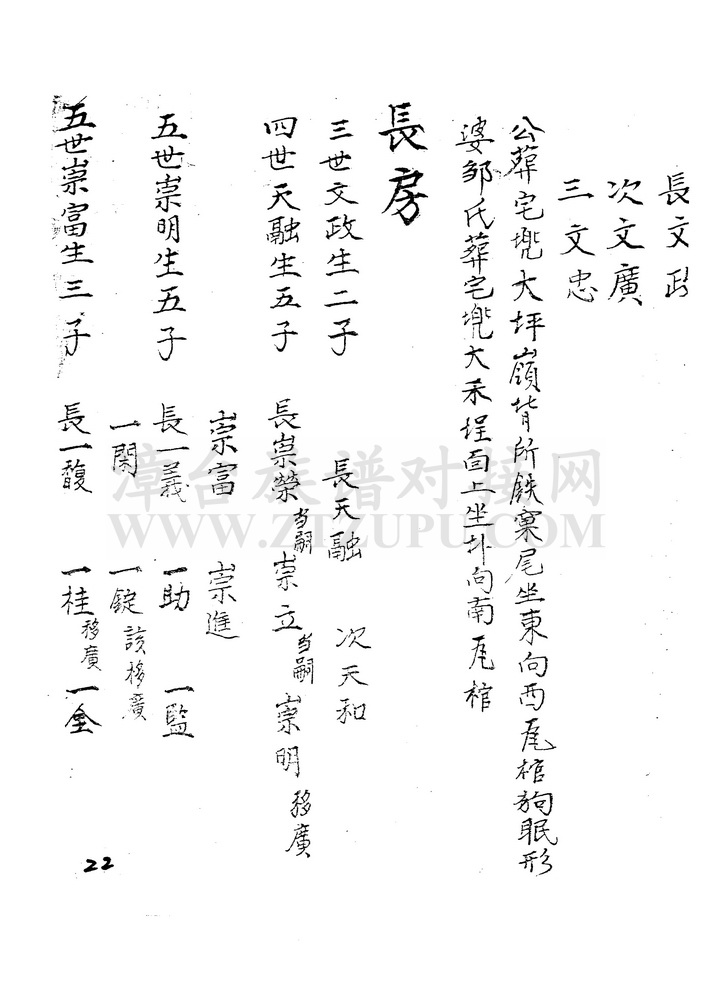 長文政
次文廣
三文忠
公葬宅兠大坪嶺背所鉄窠尾坐東向西瓦棺狗眠形
婆邹氏葬宅兠大禾埕面上坐北向南瓦棺
長房
三世文政生二子 長天融 次天和
四世天融生五子 長崇榮当嗣 崇立当嗣 崇明移廣
崇富 崇進
五世崇明生五子 長一義 一助 一監
一閑 一錠該移廣
五世崇富生三子 長一馥 一桂移廣 一全
22
漳台族谱对接网
WWW.ZTZUPU.COM